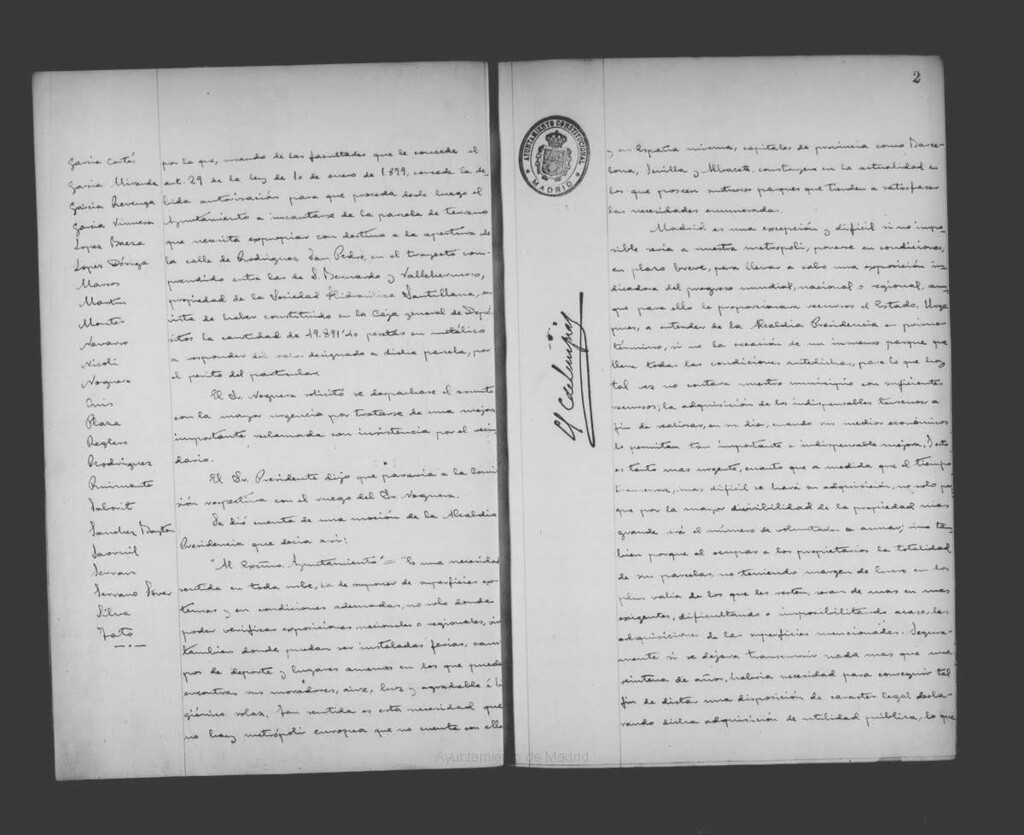 García Cortés
García Miranda
García Revenga
García Vinuesa
López Baeza
López Dóriga
Marcos
Martín
Montes
Navarro
Nicoli
Noguera
Plaza
Reglero
Rodríguez
Ruimonte
Saborit
Sánchez Bayton
Saornil
Serran
Serrano Jover
Silva
Tato
por lo que, usando de las facultades que le concede el
art. 29 de la ley de 10 de enero de 1879, concede la de-
bida autorización para que proceda desde luego el
Ayuntamiento a incautarse de la parcela de terreno
que necesita expropiar con destino a la apertura de
la calle de Rodríguez San Pedro, en el trayecto com-
prendido entre las de S. Bernardo y Vallehermoso,
propiedad de la Sociedad Hidráulica Santillana, en
vista de haber constituido en la Caja general de Depó-
sitos la cantidad de 19.891'40 pesetas en metálico
a responder del valor designado a dicha parcela, por
el perito del particular.
El Sr. Noguera solicitó se despachase el asunto
con la mayor urgencia por tratarse de una mejora
importante reclamada con insistencia por el vecin-
dario.
El Sr. Presidente dijo que pasaría a la Comi-
sión respectiva con el ruego del Sr. Noguera.
Se dió cuenta de una moción de la Alcaldía
Presidencia que decía así:
"Al Excmo. Ayuntamiento" = "Es una necesidad
sentida en toda urbe, la de suponer de superficies ex-
tensas y en condiciones adecuadas, no solo donde
poder verificar exposiciones nacionales o regionales, sin
también donde puedan ser instaladas ferias, cam-
pos de deporte y lugares amenos en los que puedan
encontrar sus moradores, aire, luz y agradable é hi-
giénico solaz. Tan sentida es esta necesidad que
no hay metrópoli europea que no cuente con ello
2
AYUNTAMIENTO CONSTITUCIONAL
MADRID
y en España misma, capitales de provincia como Barce-
lona, Sevilla y Albacete, construyen en la actualidad en
los que poseen suntuosos parques que tienden a satisfacer
las necesidades enumeradas.
Madrid es una excepción y difícil si no impo-
sible sería a nuestra metrópoli, ponerse en condiciones,
en plazo breve, para llevar a cabo una exposición in-
dicadora del progreso mundial, nacional o regional, aun-
que para ello le proporcionara recursos el Estado. Urge
pues, a entender de la Alcaldía Presidencia en primer
término, si no la creación de un inmenso parque que
llene todas las condiciones antedichas, para lo que hoy
tal vez no contara nuestro municipio con suficientes
recursos, la adquisición de los indispensables terrenos a
fin de realizar, en su día, cuando sus medios económicos
lo permitan tan importante e indispensable mejora. Y esto
es tanto mas urgente, cuanto que a medida que el tiempo
transcurre, mas difícil se hará su adquisición, no solo por
que por la mayor divisibilidad de la propiedad mas
grande irá el número de voluntades a aunar, sino tam-
bién porque al ocupar a los propietarios la totalidad
de sus parcelas, no teniendo margen de lucro en los
plus valía de los que les resten, serán de mas en mas
exigentes, dificultando o imposibilitando acaso, las
adquisiciones de las superficies mencionadas. Segura-
mente si se dejara transcurrir nada mas que una
veintena de años, habría necesidad para conseguir tal
fin de dictar una disposición de carácter legal decla-
rando dicha adquisición de utilidad pública, lo que
Ayuntamiento de Madrid